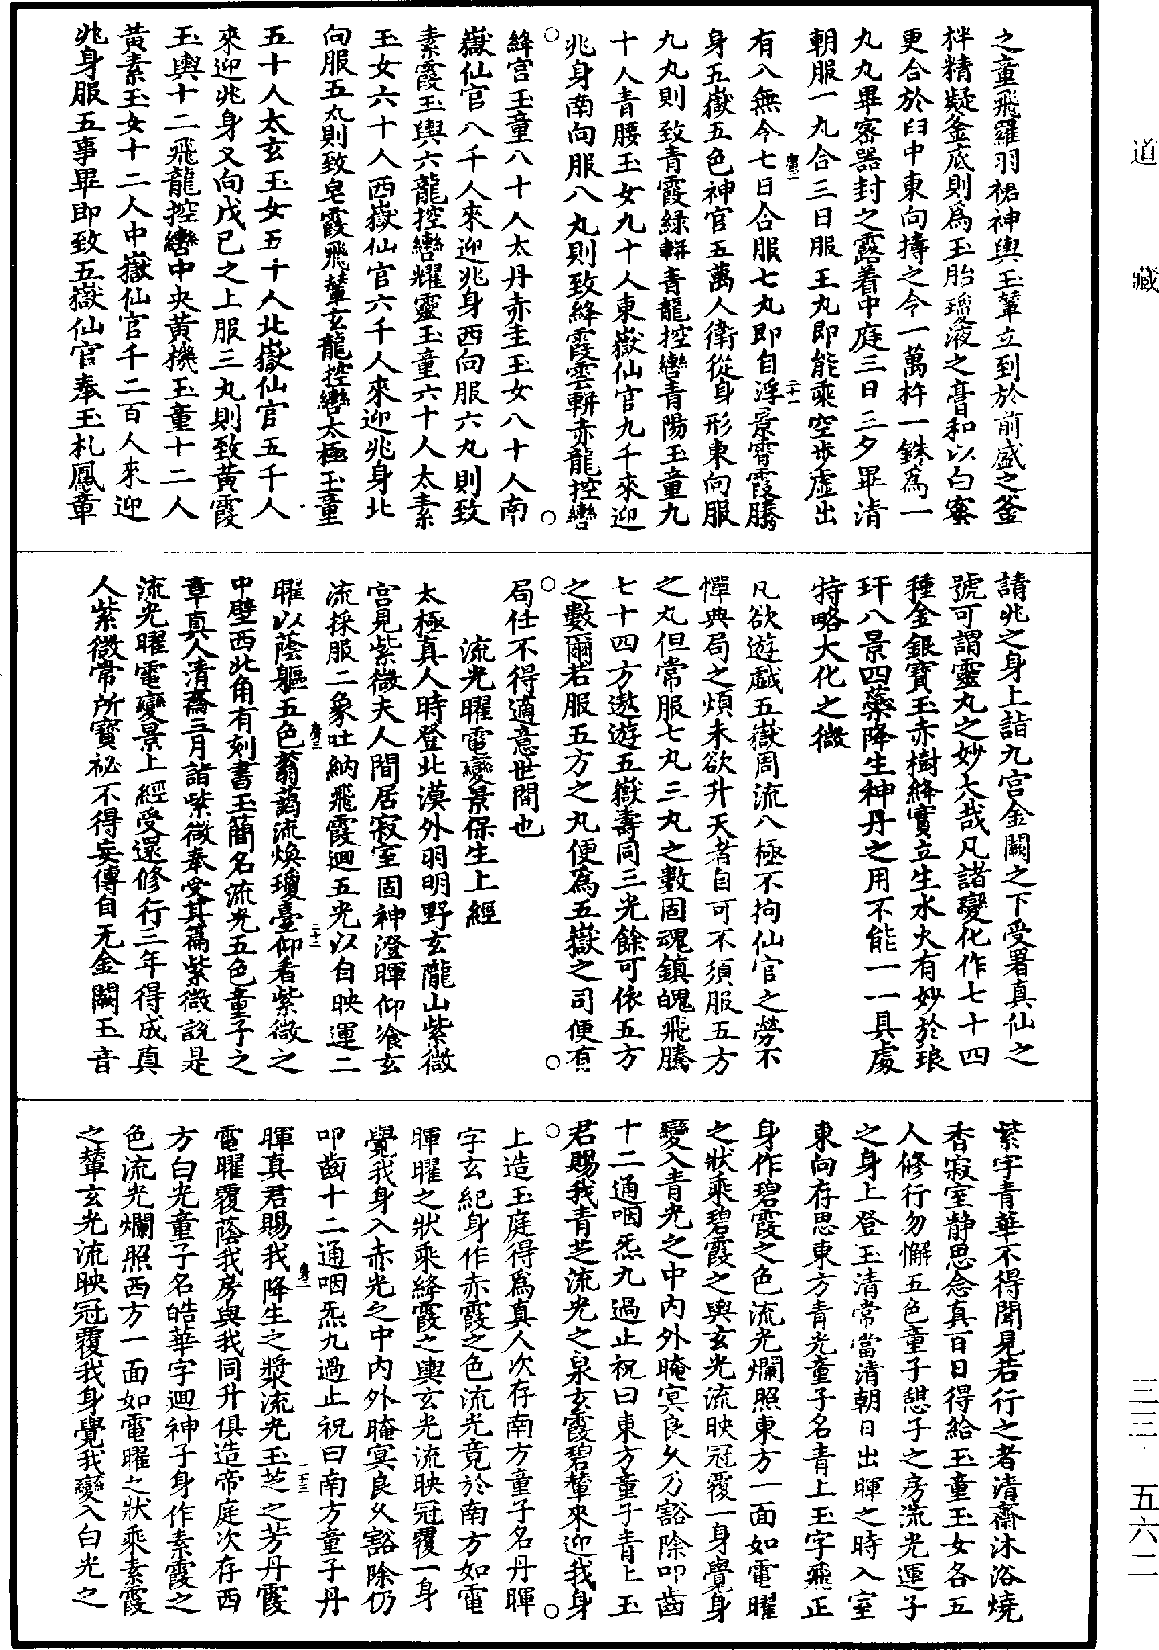 之童飛羅羽裙神輿玉輦立到於前盛之釜
拌精凝釜底則為玉胎瓊液之膏和以白蜜
更合於臼中東向擣之令一萬杵一銖為一
丸丸畢密器封之露着中庭三日三夕畢清
朝服一丸合三日服王丸即能乘空步虛出
有入無今七日合服七丸即自浮景霄霞騰
身五嶽五色神官五萬人衛從身形東向服
九丸則致青霞綠軿青龍控轡青陽玉童九
十人青腰玉女九十人東嶽仙官九千來迎
兆身南向服八丸則致絳霞雲軿赤龍控轡
絳宮玉童八十人太丹赤圭玉女八十人南
嶽仙官八千人來迎兆身西向服六丸則致
素霞玉輿六龍控轡耀靈玉童六十人太素
玉女六十人西嶽仙官六千人來迎兆身北
向服五丸則致皂霞飛輦玄龍控轡太極玉童
五十人太玄玉女五十人北嶽仙官五千人
來迎兆身又向戊己之上服三丸則致黃霞
玉輿十二飛龍控轡中央黃機玉童十二人
黃素玉女十二人中嶽仙官千二百人來迎
兆身服五事畢即致五嶽仙官奉玉札鳳章
請兆之身上詣九宮金闕之下受署真仙之
號可謂靈丸之妙大哉凡諸變化作七十四
種金銀寶玉赤樹絳實立生水火有妙於琅
玕八景四藥降生神丹之用不能一一具處
特略大化之微
凡欲遊戲五嶽周流八極不拘仙官之勞不
憚典局之煩未欲升天者自可不須服五方
之丸但常服七丸三丸之數固魂鎮魄飛騰
七十四方遨遊五嶽壽同三光餘可依五方
之數爾若服五方之丸便為五嶽之司便有
局任不得適意世間也
流光曜電變景保生上經
太極真人時登北漠外羽明野玄隴山紫微
宮見紫微夫人閒居寂室固神澄暉仰飡玄
流採服二象吐納飛霞迴五光以自映運二
曜以蔭軀五色蓊藹流煥瓊臺仰看紫微之
中壁西北角有刻書玉簡名流光五色童子之
章真人清齋三月詣紫微奉受其篇紫微說是
流光曜電變景上經受還修行三年得成真
人紫微常所寶祕不得妄傳自无金闕玉音
紫字青華不得聞見若行之者清齋沐浴燒
香寂室靜思念真百日得給玉童玉女各五
人修行勿懈五色童子憇子之房流光運子
之身上登玉清常當清朝日出暉之時入室
東向存思東方青光童子名青上玉字飛正
身作碧霞之色流光爛照東方一面如電曜
之狀乘碧霞之輿玄光流映冠覆一身覺身
變入青光之中內外晻冥良久乃豁除叩齒
十二通咽炁九過止祝曰東方童子青上玉
君賜我青芝流光之泉玄霞碧輦來迎我身
上造玉庭得為真人次存南方童子名丹暉
字玄紀身作赤霞之色流光竟於南方如電
暉曜之狀乘絳霞之輿玄光流映冠覆一身
覺我身入赤光之中內外晻冥良久豁除仍
叩齒十二通咽炁九過止祝曰南方童子丹
暉真君賜我降生之漿流光玉芝之芳丹霞
電曜覆蔭我房與我同升俱造帝庭次存西
方白光童子名皓華字迴神子身作素霞之
色流光爛照西方一面如電曜之狀乘素霞
之輦玄光流映冠覆我身覺我變入白光之
道藏
三三·五六二